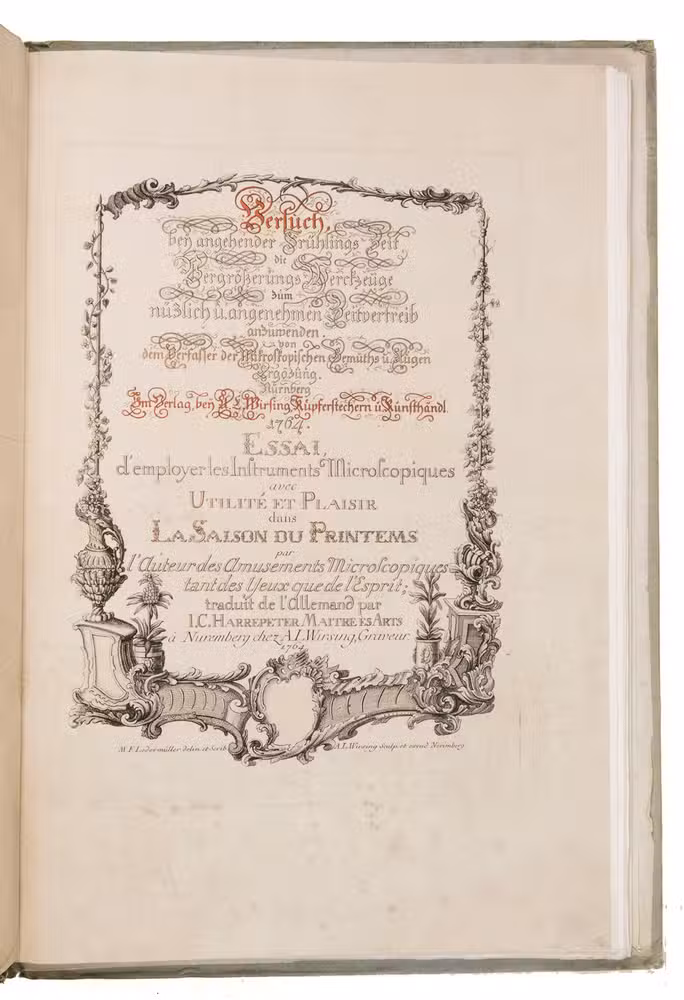 Versuch,
beÿ angehender Frühlings Zeit
die
Vergrößerungs Werckzeuge
zum
nüzlich u. angenehmen Zeitvertreib
anzuwenden.
von
dem Verfasser der Mikroskopischen Gemüths u. Augen
Ergözung.
Nürnberg
Im Verlag, beÿ A. L. Wirsing Kupferstechern u. Kunsthändl.
1764.
ESSAI,
d'employer les Instruments Microscopiques
avec
UTILITÉ ET PLAISIR
dans
LA SAISON DU PRINTEMS
par
l'Auteur des Amusements Microscopiques
tant des Yeux que de l'Esprit;
traduit de l'Allemand par
I. C. HARREPETER MAITRE ÉS ARTS
à Nuremberg chez A. L. Wirsing, Graveur
1764
M. F. Ledermüller delin. et Scrib.
A. L. Wirsing Sculps. et excud. Norimberg